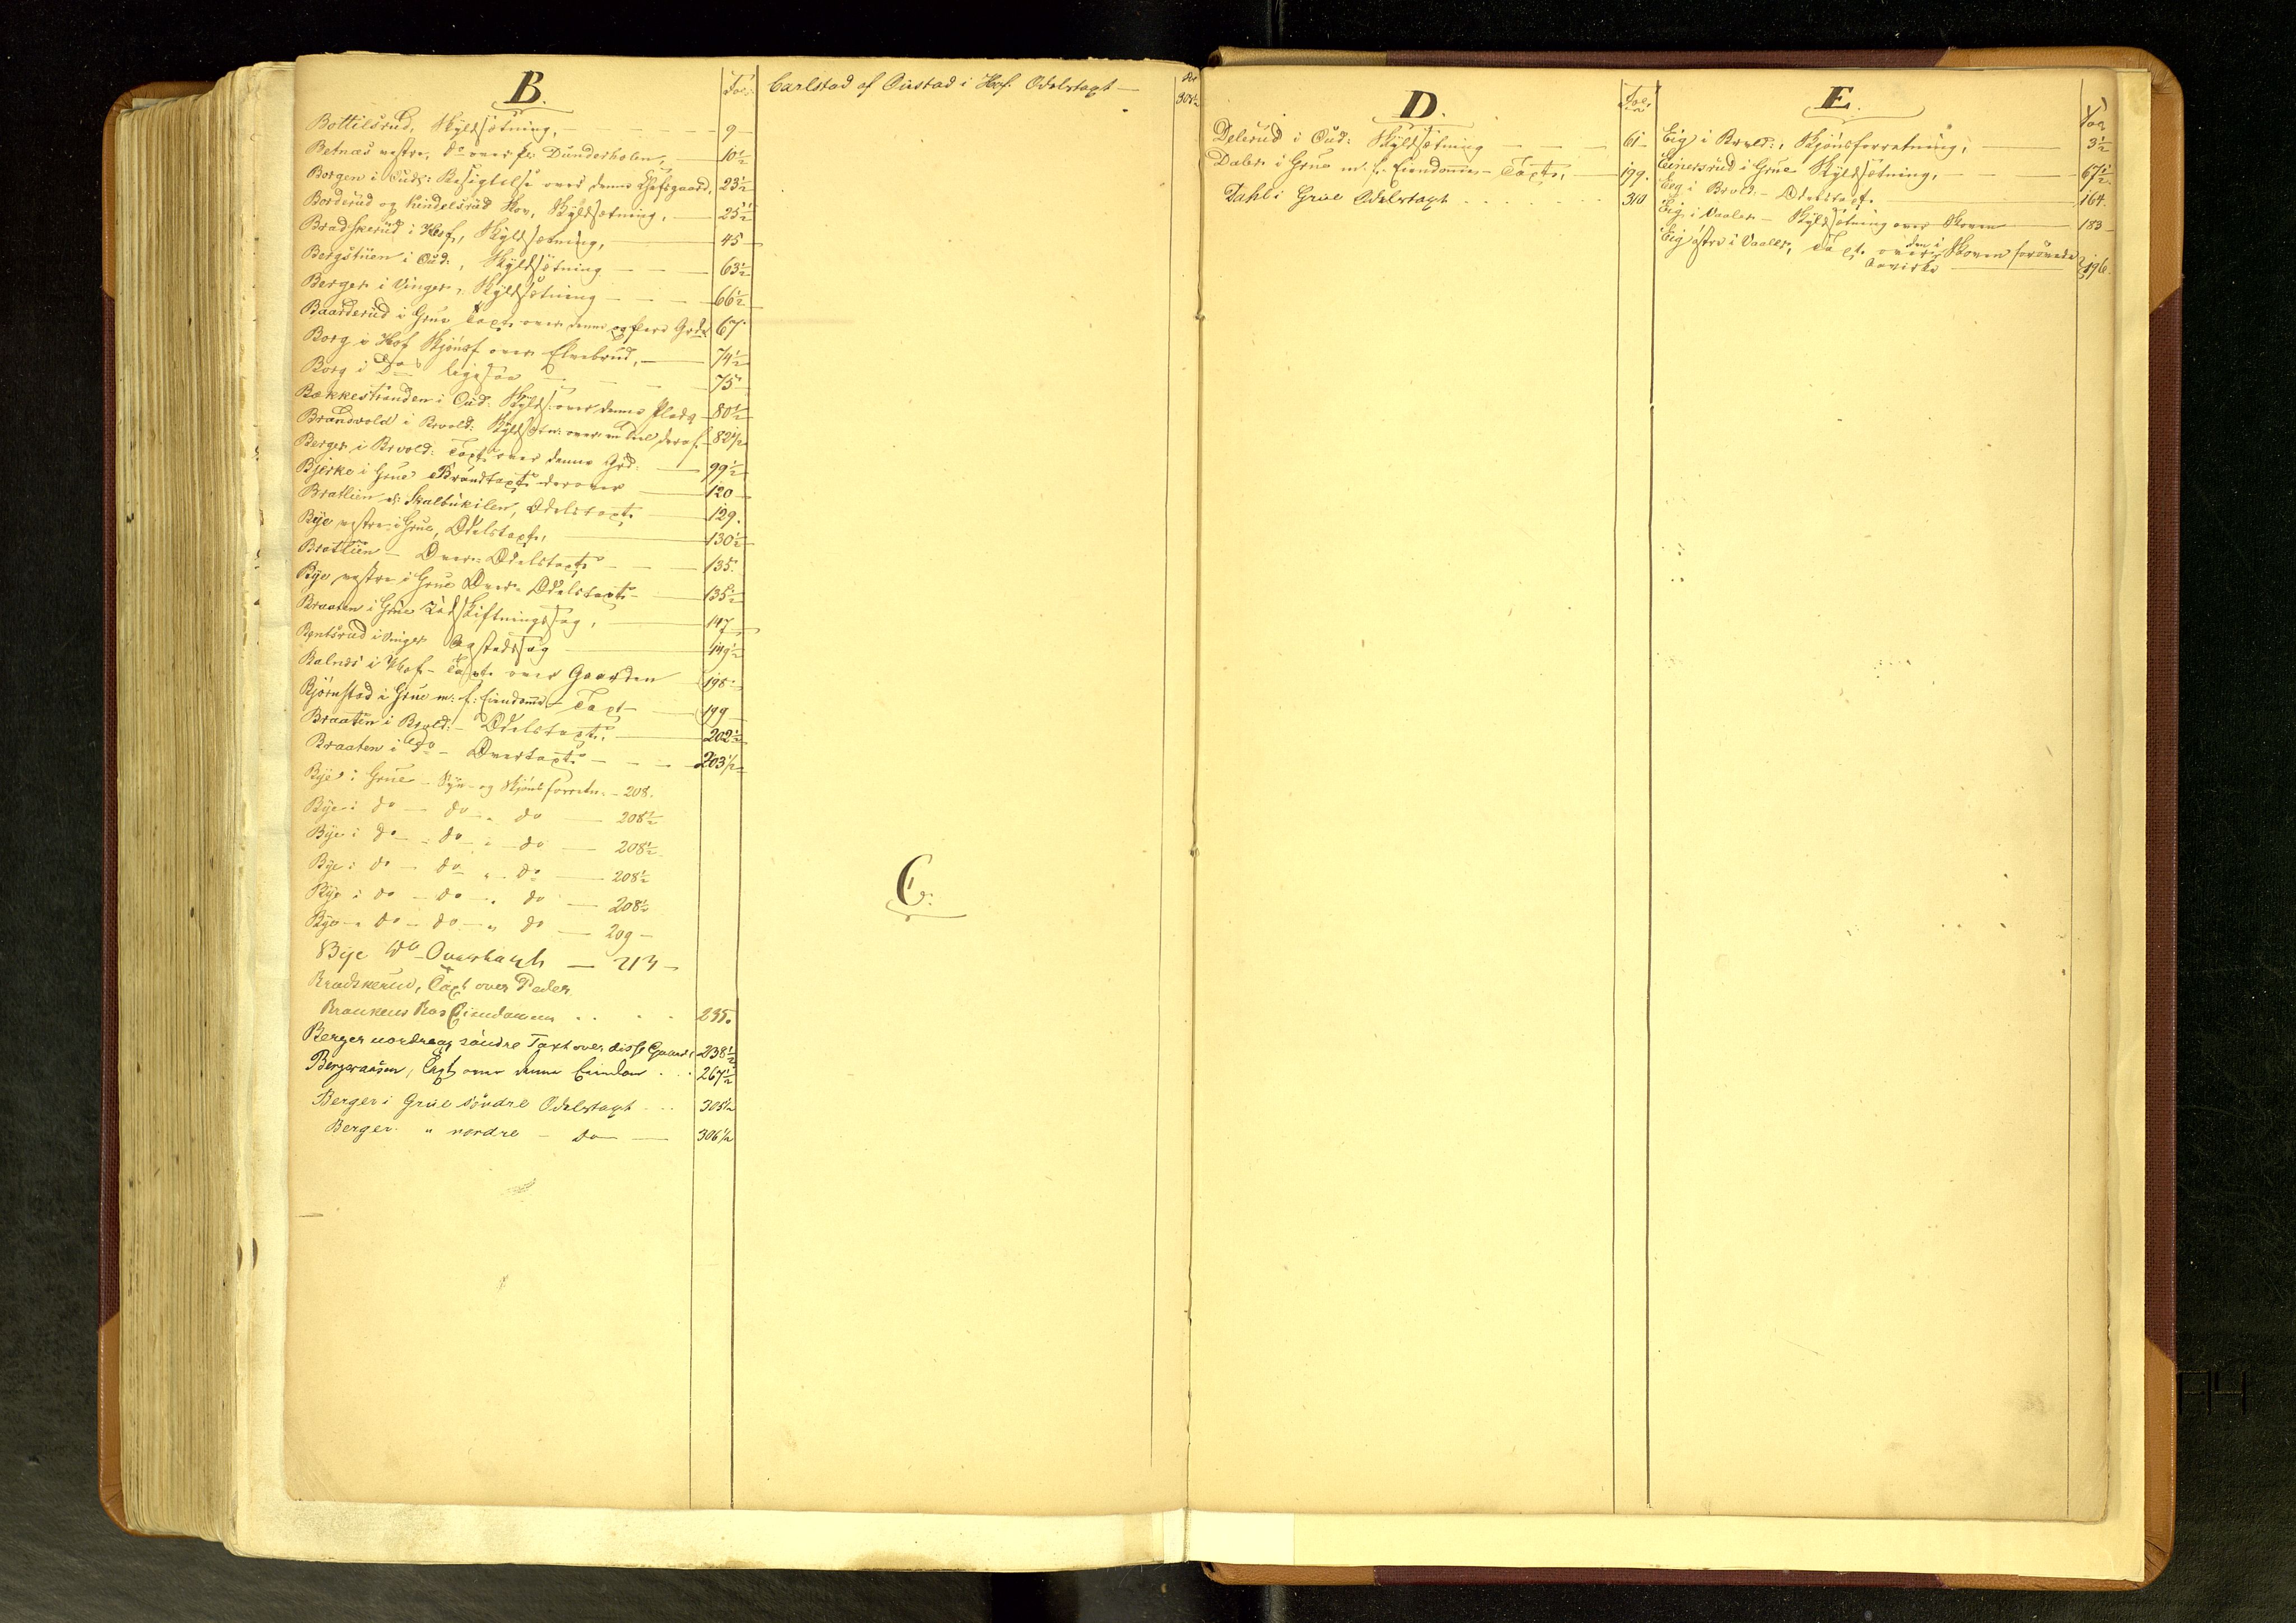 B.
Fol:
Bottilsrud, Skyldsætning, 9
Betnæs vestre, do over Dunderholen, 10½
Borgen i Oud: Besigtelse over denne Chefsgaard, 23½
Borderud og Kindelsrud Skov, Skyldsætning, 25½
Bradskerud i Hof, Skyldsætning, 45
Bergstuen i Oud:, Skyldsætning 63½
Berger i Vinger, Skyldsætning 66½
Baarderud i Grue Taxt over denne og flere Grde 67
Borg i Hof Skjönsf. over Elvebrud, 74½
Borg i Do ligesaa 75
Bækkestranden i Oud: Skylds: over denne Plads 80½
Brandvold i Brvold: Skyldsætn: over en Deel deraf 82½
Berger i Brvold: Taxt over denne Grd: 99½
Bjerke i Grue Brandtaxt derover 120
Bratlien el: Skalbukilen, Odelstaxt 129.
Bye vestre i Grue, Odelstaxt, 130½
Bratlien – Over-Odelstaxt 135.
Bye vestre i Grue Over-Odelstaxt 135½
Braaten i Grue Udskiftningssag, 147
Bentsrud i Vinger Aastedssag 149½
Balnes i Hof – Taxt over Gaarden 198
Björnstad i Grue m: f: Eiendomme – Taxt 199
Braaten i Brvold: – Odelstaxt, 202½
Braaten i do – Overtaxt 203½
Bye i Grue – Syn- og Skjönsforretn. – 208.
Bye i do – do – do – 208½
Bye i do – do – do – 208½
Bye i do – do – do – 208½
Bye i do – do – do – 208½
Bye – do – do – do – 209 –
Bye do – Overtaxt – 213 –
Bradskerud, Taxt over Peder
Eiendomme 235.
Berger nordre og söndre Taxt over disse Gaarde 238½
Bergeraasen, Taxt over denne Eiendom 267½
Berger i Grue söndre Odelstaxt 305½
Berger " nordre – do – 306½
Carlstad af Oustad i Hof. Odelstaxt – 308½
C.
D.
Fol.
Delerud i Oud: Skyldsætning 61
Daler i Grue m. f. Eiendomme – Taxt, 199.
Dahl i Grue Odelstaxt 310
E.
Fol
Eig i Brvold:, Skjönsforretning, 3½
Einersrud i Grue Skyldsætning, 67½
Eeg i Brvold – Odelstaxt. 164.
Eig i Vaaler – Skyldsætning over Skoven 183
Eig östre i Vaaler, Taxt over den i Skoven forövede
Hovirke 196.